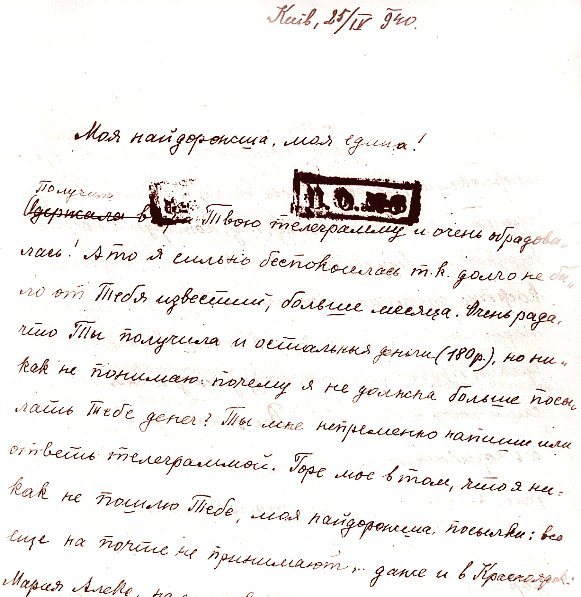 Київ, 25/IV 940.
Моя найдорожша, моя едина!
Получила
Одержала в Твою телеграмму и очень обрадова-
лась! А то я сильно беспокоилась т.к. долго не бы-
ло от Тебя известий, больше месяца. Очень рада,
что Ты получила и остальные деньги (180р.), но ни-
как не понимаю почему я не должна больше посы-
лать Тебе денег? Ты мне непременно напиши или
ответь телеграммой. Горе мое в том, что я ни-
как не пошлю Тебе, моя найдорожша, посылки: все
еще на почте не принимают, даже и в Красноярск.
Мария Алекс,